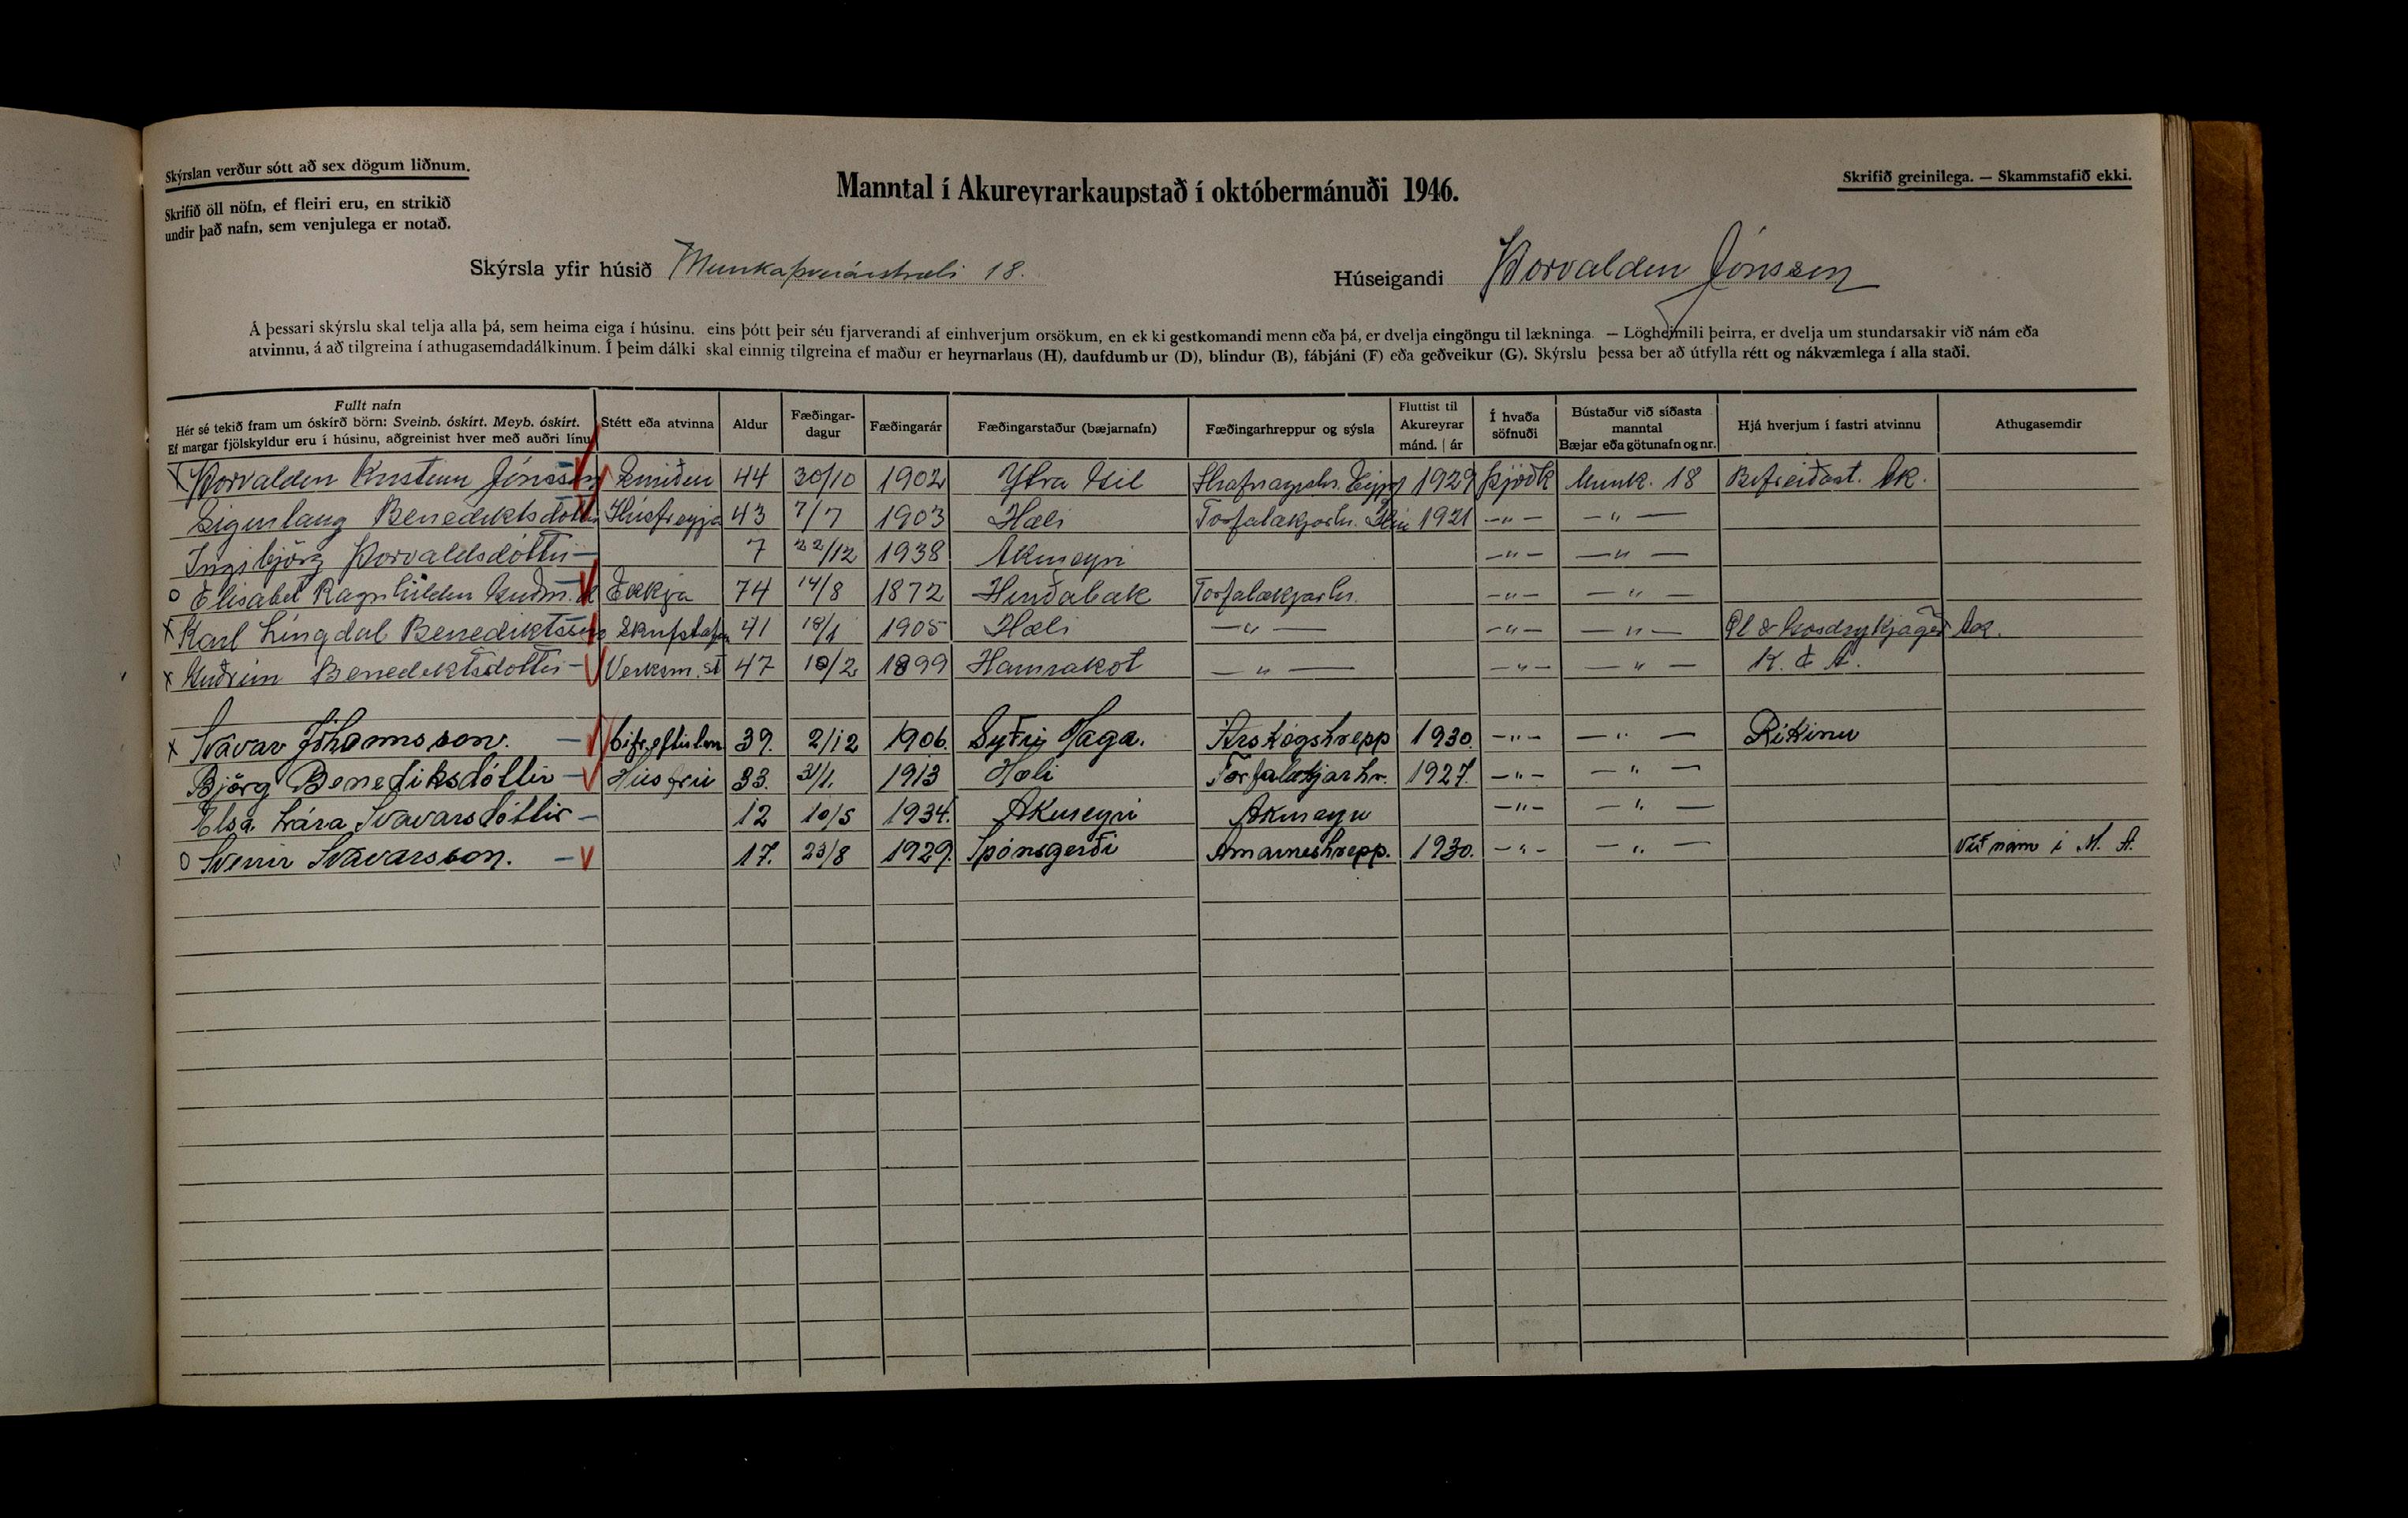 Skýrslan verður sótt að sex dögum liðnum.
Skrifið öll nöfn, ef fleiri eru, en strikið
undir það nafn, sem venjulega er notað.
Manntal í Akureyrarkaupstað í októbermánuði 1946.
Skrifið greinilega. — Skammstafið ekki.
Skýrsla yfir húsið Munkaþverárstræti 18.
Húseigandi Þorvaldur Jónsson
Á þessari skýrslu skal telja alla þá, sem heima eiga í húsinu, eins þótt þeir séu fjarverandi af einhverjum orsökum, en ekki gestkomandi menn eða þá, er dvelja eingöngu til lækninga. — Lögheimili þeirra, er dvelja um stundarsakir við nám eða
atvinnu, á að tilgreina í athugasemdadálkinum. Í þeim dálki skal einnig tilgreina ef maður er heyrnarlaus (H), daufdumbur (D), blindur (B), fábjáni (F) eða geðveikur (G). Skýrslu þessa ber að útfylla rétt og nákvæmlega í alla staði.
Fullt nafn
Hér sé tekið fram um óskírð börn: Sveinb. óskírt. Meyb. óskírt.
Ef margar fjölskyldur eru í húsinu, aðgreinist hver með auðri línu
Stétt eða atvinna
Aldur
Fæðingar-
dagur
Fæðingarár
Fæðingarstaður (bæjarnafn)
Fæðingarhreppur og sýsla
Fluttist til
Akureyrar
mánd. | ár
Í hvaða
söfnuði
Bústaður við síðasta
manntal
Bæjar eða götunafn og nr.
Hjá hverjum í fastri atvinnu
Athugasemdir
x Þorvaldur Kristinn Jónsson Smiður 44 30/10 1902 Ytra Gil Hrafnagilshr. Eyjf 1929 Þjóðk Munk. 18 Bifreiðast. Ak.
Sigurlaug Benediktsdóttir Húsfreyja 43 7/7 1903 Hæli Torfalækjarhr. Hún 1921 —"— —"—
Ingibjörg Þorvaldsdóttir — 7 22/12 1938 Akureyri —"— —"—
o Elísabet Ragnhildur Guðm.d. Ekkja 74 14/8 1872 Hurðabak Torfalækjarhr. —"— —"—
x Karl Lingdal Benediktsson 41 1905 Hæli —"— —"— —"— Öl & Gosdrykkjagerð Ak.
x Guðrún Benediktsdóttir — Verksm. st 47 10/2 1899 Hamrakot —"— —"— —"— K. E. A.
x Svavar Jóhannsson. — bifr.eftirlm 39. 2/12 1906. Syðri Haga. Árskógshrepp 1930. —"— —"— Ríkinu
Björg Benediksdóttir — Húsfrú 33. 31/1. 1913 Hæli Torfalækjarhr. 1927. —"— —"—
Elsa Lára Svavarsdóttir — 12 10/5 1934. Akureyri Akureyri —"— —"—
o Sverrir Svavarsson. — 17. 23/8 1929. Spónsgerði Arnarneshrepp. 1930. —"— —"— Við nám í M. A.